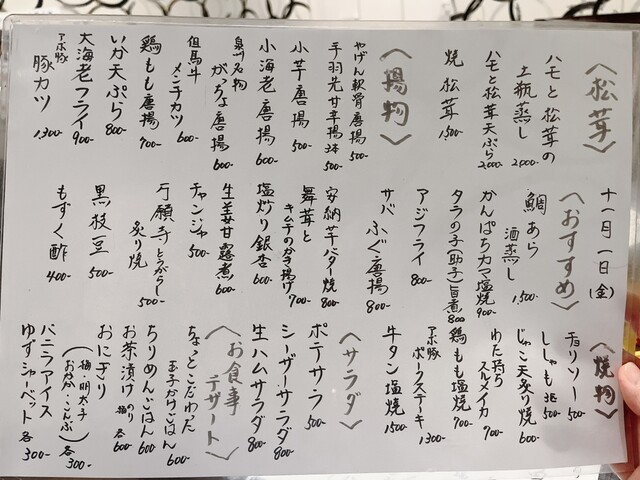 〈松茸〉
ハモと松茸の
土瓶蒸し 2000-
ハモと松茸天ぷら 2000-
焼松茸 1500-
〈揚物〉
やげん軟骨唐揚 500-
手羽先甘辛揚 3本 500-
小芋唐揚 500-
小海老唐揚 600-
泉州名物
がっちょ唐揚 600-
但馬牛
メンチカツ 600-
鶏もも唐揚 700-
いか天ぷら 800-
大海老フライ 900-
アボ豚
豚カツ 1300-
十一月一日(金)
〈おすすめ〉
鯛あら
酒蒸し 1,500-
かんぱちカマ塩焼 900-
タラの子(助子)旨煮 800-
アジフライ 800-
サバふぐ唐揚 800-
安納芋バター焼 800-
舞茸と
キムチのかき揚げ 700-
塩炒り銀杏 600-
生姜甘露煮 600-
チャンジャ 500-
万願寺とうがらし
炙り焼 500-
黒枝豆 500-
もずく酢 400-
〈焼物〉
チョリソー 500-
ししゃも 3匹 500-
じゃこ天炙り焼 600-
わた持ち
スルメイカ 700-
鶏もも塩焼 700-
アボ豚
ポークステーキ 1300-
牛タン塩焼 1500-
〈サラダ〉
ポテサラ 500-
シーザーサラダ 800-
生ハムサラダ 800-
〈お食事
デザート〉
ちょっとこだわった
玉子かけごはん 600-
ちりめんごはん 600-
お茶漬け のり 梅 各600-
おにぎり
(梅・明太子
おかか・こんぶ) 各300-
バニラアイス
ゆずシャーベット 各300-